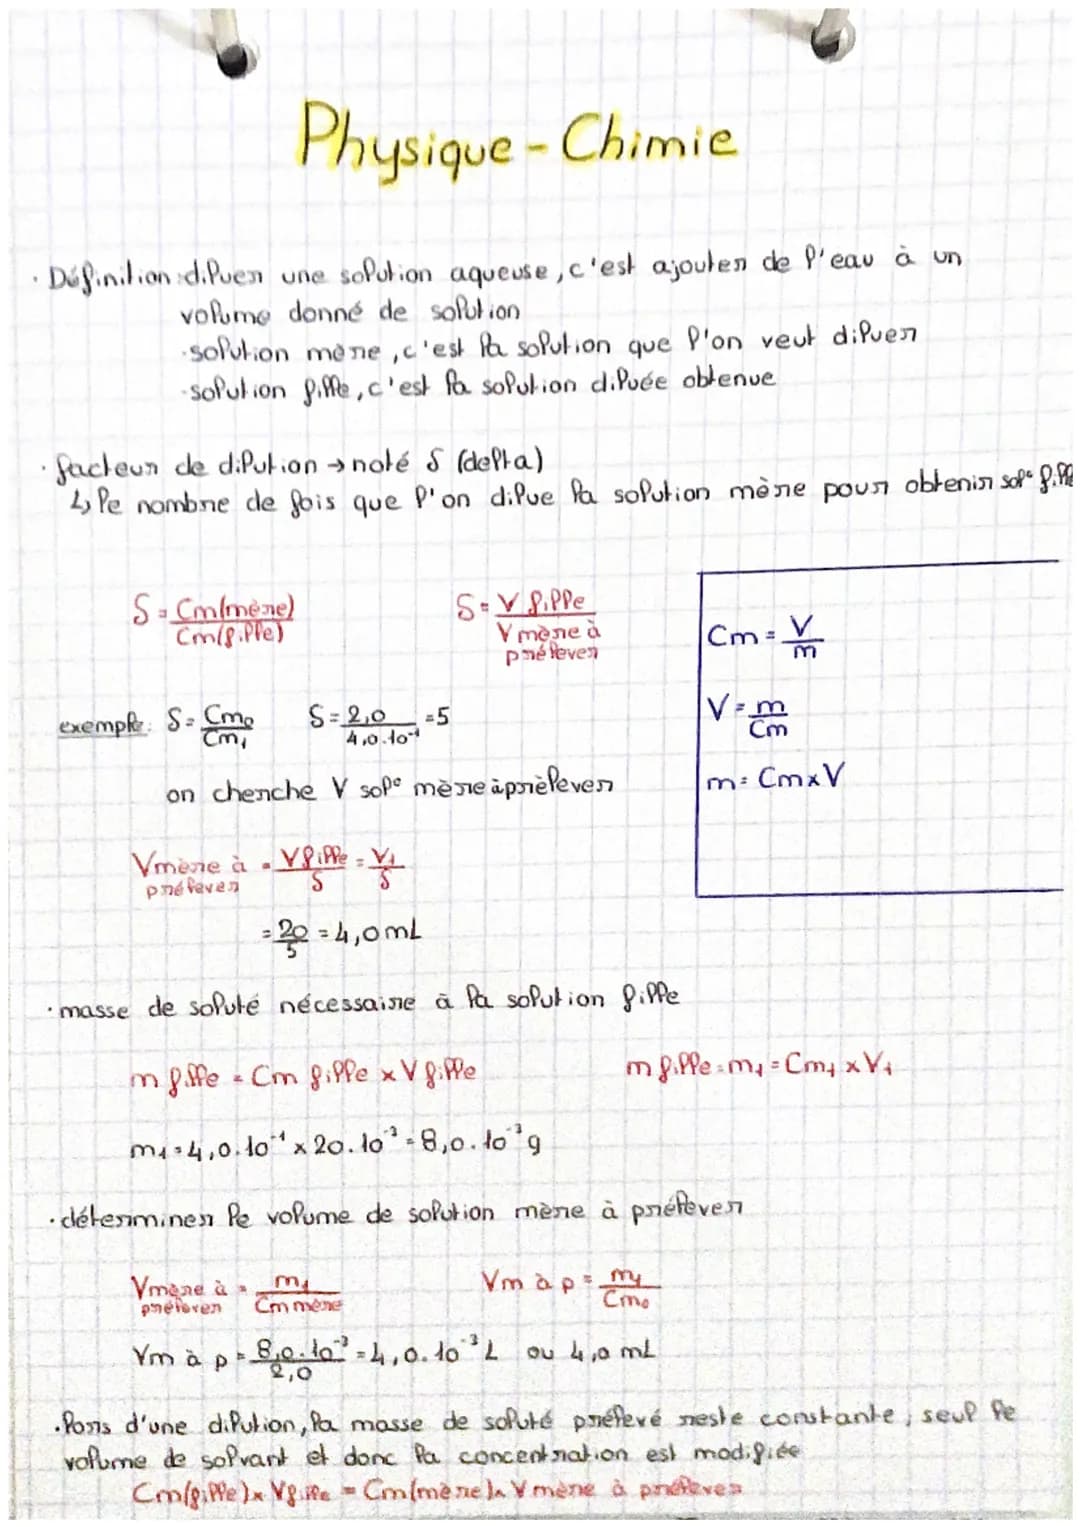 Physique - Chimie
· Définition : diluer une solution aqueuse, c'est ajouter de l'eau à un
volume donné de solution
· solution mère, c'est la solution que l'on veut diluer
· solution fille, c'est la solution diluée obtenue
· facteur de dilution → noté δ (delta)
↳ le nombre de fois que l'on dilue la solution mère pour obtenir sol° fille
δ = Cm(mère) / Cm(fille)
δ = V fille / V mère à prélever
Cm = V / m
V = m / Cm
m = Cm x V
exemple : δ = Cm₀ / Cm₁   δ = 2,0 / 4,0.10⁻¹ = 5
on cherche V sol° mère à prèlever
Vmère à prélever = V fille / δ = V₁ / δ
= 20 / 5 = 4,0 mL
· masse de soluté nécessaire à la solution fille
m fille = Cm fille x V fille   m fille = m₁ = Cm₁ x V₁
m₁ = 4,0.10⁻¹ x 20.10⁻³ = 8,0.10⁻³ g
· déterminer le volume de solution mère à prélever
Vmère à prélever = m₁ / Cm mère   Vm à p = m₁ / Cm₀
Vm à p = 8,0.10⁻³ / 2,0 = 4,0.10⁻³ L ou 4,0 mL
· lors d'une dilution, la masse de soluté prélevé reste constante, seul le
volume de solvant et donc la concentration est modifiée
Cm(fille) x V fille = Cm(mère) x V mère à prélever